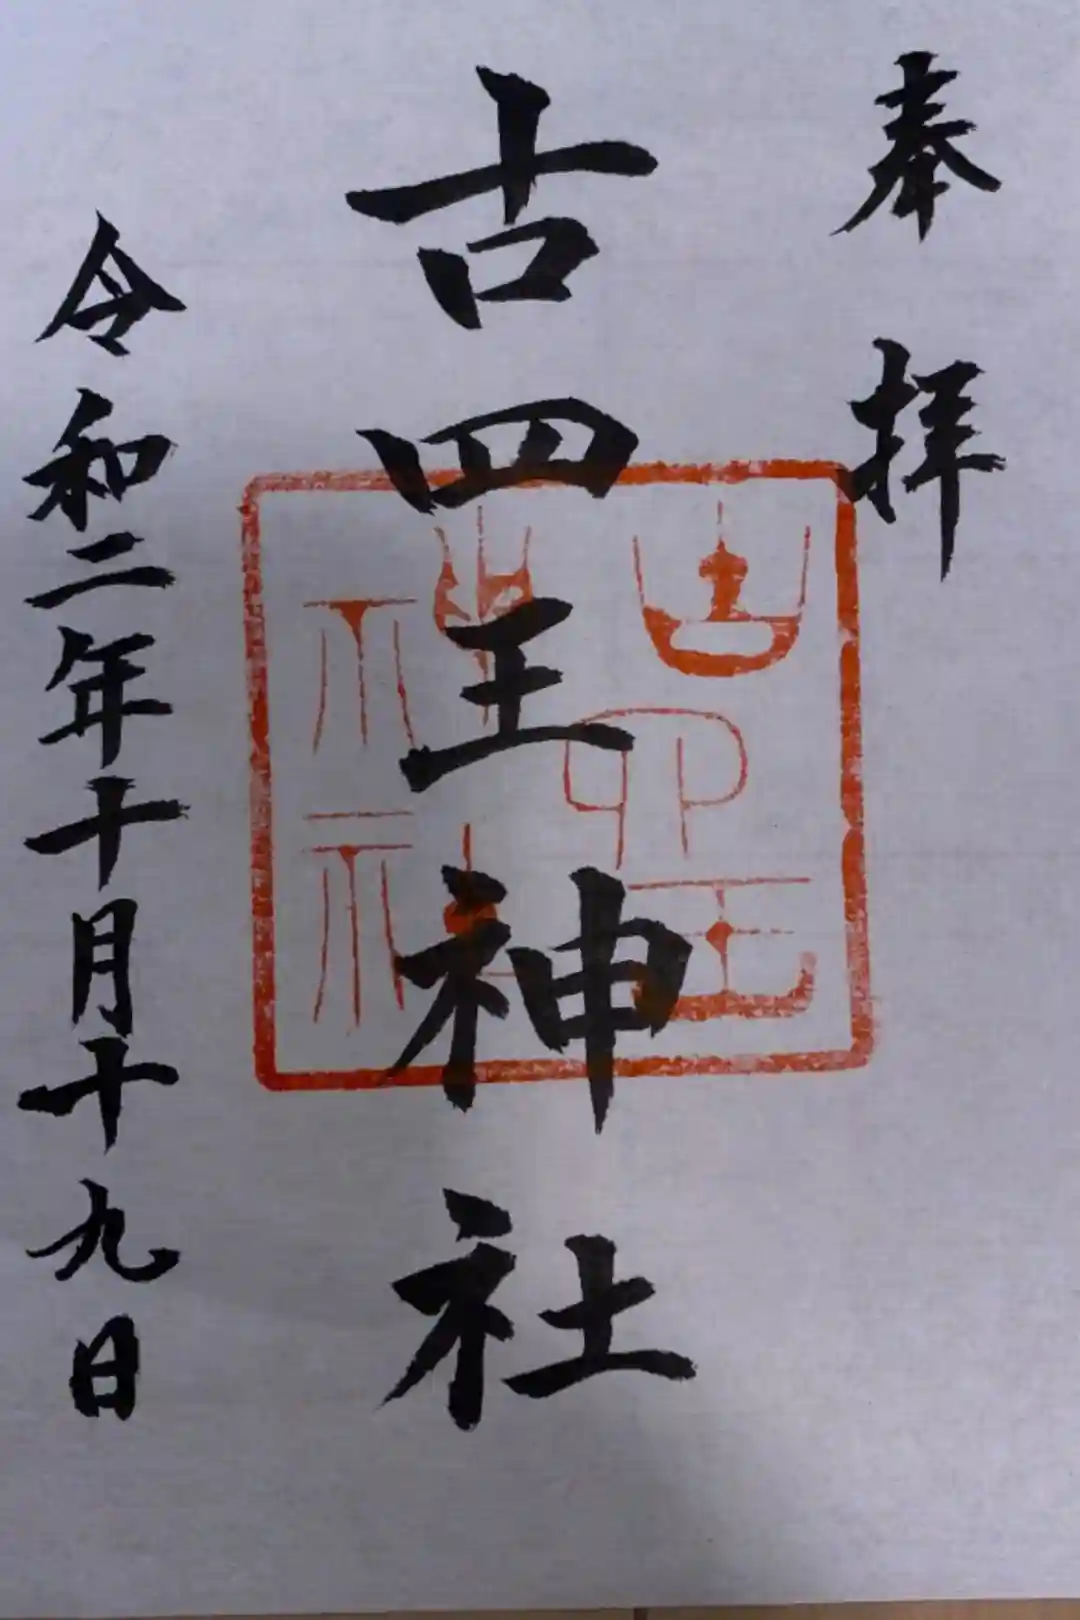 奉拝
古四王神社
令和二年十月十九日
古四王
神社